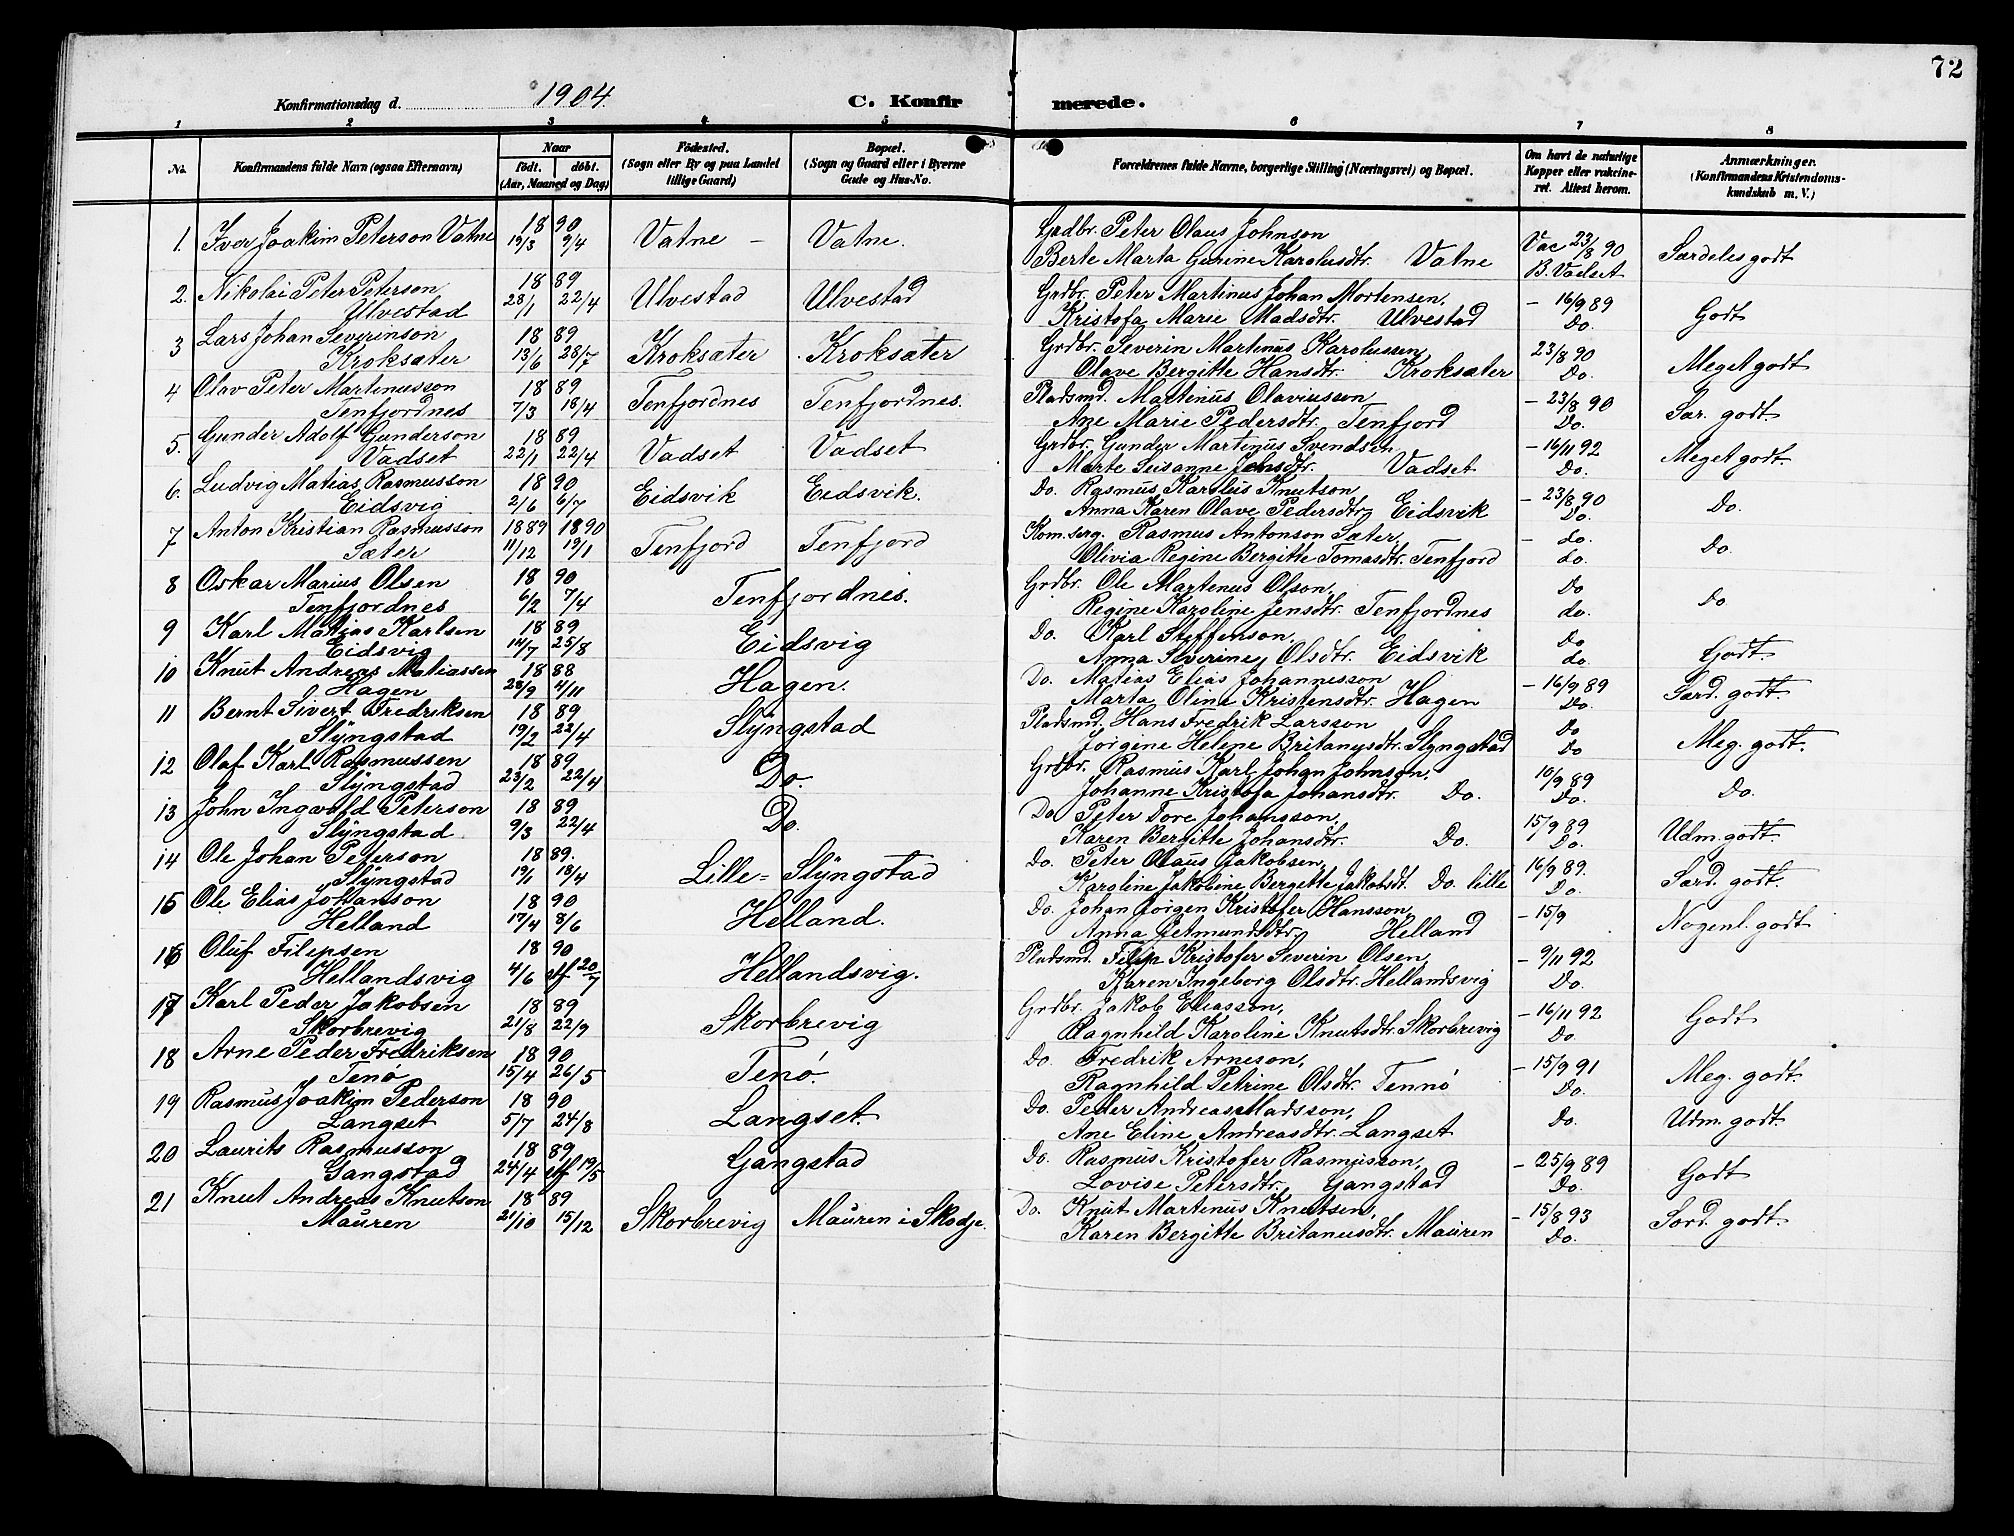 72
Konfirmationsdag d. 1904. C. Konfirmerede.
1 2 3 4 5 6 7 8
No. Konfirmandens fulde Navn (ogsaa Efternavn) Naar født. døbt. (Aar, Maaned og Dag) Fødested. (Sogn eller By og paa Landet tillige Gaard) Bopæl. (Sogn og Gaard eller i Byerne Gade og Hus-No. Forældrenes fulde Navne, borgerlige Stilling (Næringsvei) og Bopæl. Om havt de naturlige Kopper eller vakcineret. Attest herom. Anmærkninger. (Konfirmandens Kristendomskundskab m. V.)
1. Iver Joakim Peterson Vatne 18 90 Vatne – Vatne. Gadbr. Peter Olaus Johnson
19/3 9/4 Berte Marta Gurine Karolusdtr. Vatne Vac 23/8 90 B. Vadset Særdeles godt
2. Nikolai Peter Peterson 18 89 Ulvestad Ulvestad Grdbr. Peter Martinus Johan Mortensen,
Ulvestad 28/1 22/4 Kristofa Marie Madsdtr. Ulvestad – 16/9 89 Do. Godt
3 Lars Johan Severinson 18 89 Kroksæter Kroksæter Grdbr. Severin Martinus Karolussen,
Kroksæter 13/6 28/7 Olave Bergitte Hansdtr. Kroksæter 23/8 90 Do. Meget godt
4 Olav Peter Martinusson 18 89 Tenfjordnes Tenfjordnes. Pladsmd. Martinus Olaviusson
Tenfjordnes 7/3 18/4 Ane Marie Pedersdtr. Tenfjord – 23/8 90 Do. Sær. godt
5. Gunder Adolf Gunderson 18 89 Vadset Vadset Grdbr. Gunder Martinus Svendsen,
Vadset 22/1 22/4 Marte Susanne Jensdtr. Vadset – 16/11 92 Do. Meget godt.
6. Ludvig Matias Rasmusson 18 90 Eidsvik Eidsvik. Do. Rasmus Karolus Knutson,
Eidsvig 2/6 6/7 Anna Karen Olave Pedersdtr. Eidsvik – 23/8 90 Do. Do.
7 Anton Kristian Rasmusson 1889 1890 Tenfjord Tenfjord Kom.serg. Rasmus Antonson Sæter,
Sæter 11/12 19/1 Olivia Regine Bergitte Tomasdtr. Tenfjord – do. do. Do.
8 Oskar Marius Olsen 18 90 Tenfjordnes. Grdbr. Ole Martenus Olson,
Tenfjordnes 6/2 7/4 Regine Karoline Jensdtr. Tenfjordnes Do do. Do
9 Karl Matias Karlsen 18 89 Eidsvig Do. Karl Steffenson,
Eidsvig 14/7 25/8 Anna Severine Olsdtr. Eidsvik Do do. Godt.
10 Knut Andreas Matiassen 18 88 Hagen. Do. Matias Elias Johannesson
Hagen 28/9 4/11 Marta Oline Kristensdtr. Hagen – 16/9 89 Do. Særd. godt.
11 Bernt Sivert Fredriksen 18 89 Slyngstad Pladsmd. Hans Fredrik Larsson
Slyngstad 19/2 22/4 Jørgine Helene Britanusdtr. Slyngstad Do Do Meg. godt.
12 Olaf Karl Rasmussen 18 89 Do. Grdbr. Rasmus Karl Johan Johnson,
Slyngstad 23/2 22/4 Johanne Kristofa Johansdtr. Do. 10/9 89 Do. Do.
13 John Ingvald Peterson 18 89 Do. Do Peter Tore Johansson,
Slyngstad 9/3 22/4 Karen Bergitte Johansdtr. Do. 15/9 89 Do. Udm. godt.
14 Ole Johan Peterson 18 89. Lille= Slyngstad Do. Peter Olaus Jakobsen,
Slyngstad 19/1 18/4 Karoline Jakoline Bergette Jakobsdt. Do. lille 16/9 89. Do. Særd. godt.
15 Ole Elias Johanson 18 90 Helland. Do. Johan Jørgen Kristofer Hansson,
Helland 17/4 8/6 Anna Jetmundsdtr. Helland – 15/9 Nogenl. godt
16 Oluf Filipsen 18 90 Hellandsvig. Pladsmd. Filip Kristofer Severin Olsen,
Hellandsvig 4/6 20/7 Karen Ingeborg Olsdtr. Hellandsvig – 9/11 92 Do.
17 Karl Peder Jakobsen 18 89 Skorbrevig Grdbr. Jakob Eliasson,
Skorbrevig 21/8 22/9 Ragnhild Karoline Knutsdtr. Skorbrevig – 16/11 92 Do Godt
18 Arne Peder Fredriksen 18 90 Tenø. Do. Fredrik Arneson,
Tenø 15/4 26/5 Ragnhild Petrine Olsdtr. Tennø – 15/9 91 Do. Meg. godt.
19 Rasmus Joakim Pederson 18 90 Langset. Do. Peder Andreas Madsson,
Langset 5/7 24/8 Ane Eline Andreasdtr. Langset Do. Udm. godt.
20 Laurits Rasmusson 18 89 Gangstad Do. Rasmus Kristofer Rasmusson,
Gangstad 24/4 19/5 Lovise Petersdtr. Gangstad – 25/9 89 Do. Godt
21 Knut Andreas Knutson 18 89 Skorbrevig Mauren i Skodje. Do. Knut Martinus Knutsen,
Mauren 21/10 15/12 Karen Bergitte Britanusdtr. Mauren – 15/8 93 Do. Særd. godt.